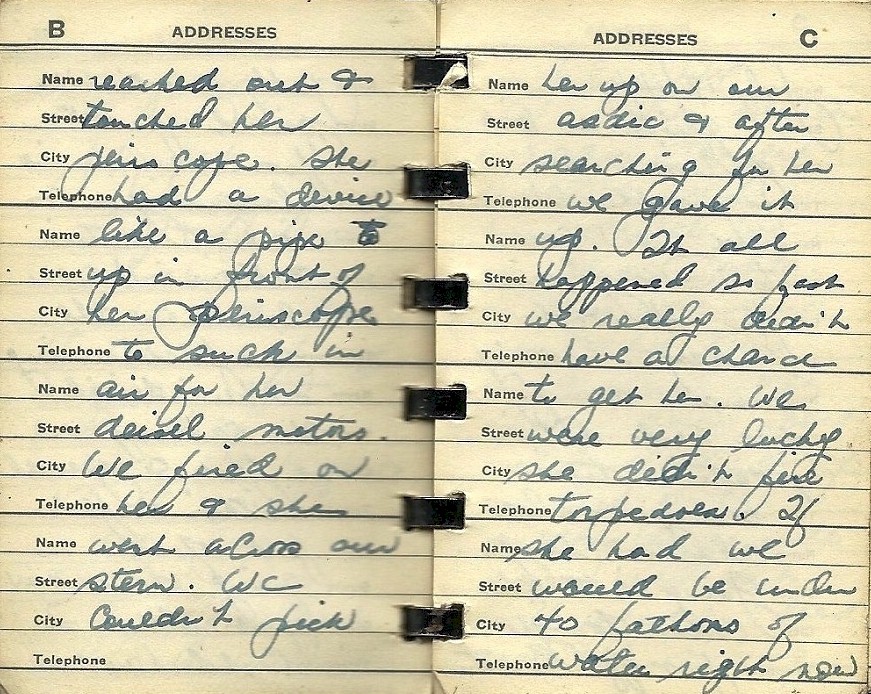 B ADDRESSES
Name reached out &
Street touched her
City periscope. She
Telephone had a device
Name like a pipe to
Street up in front of
City her periscope
Telephone to suck in
Name air for her
Street deisel motors.
City We fired on
Telephone her & she
Name went across our
Street stern. We
City Couldn't pick
Telephone
ADDRESSES C
Name her up on our
Street asdic & after
City searching for her
Telephone we gave it
Name up. It all
Street happened so fast
City we really didn't
Telephone have a chance
Name to get her. We
Street were very lucky
City she didn't fire
Telephone torpedoes. If
Name she had we
Street would be under
City 40 fathoms of
Telephone water right now